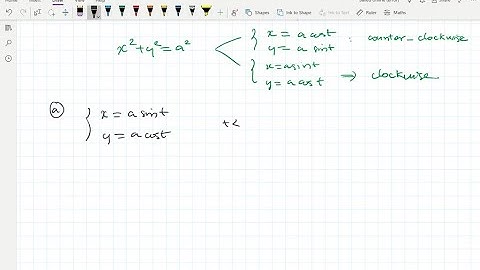 Shapes Ink to Shape Ink to Math Ruler Maths
x² + y² = a²
x = a cost
y = a sint
: counter-clockwise
x = a sint
y = a cos t
→ clockwise
ⓐ
x = a sint
y = a cost
t<